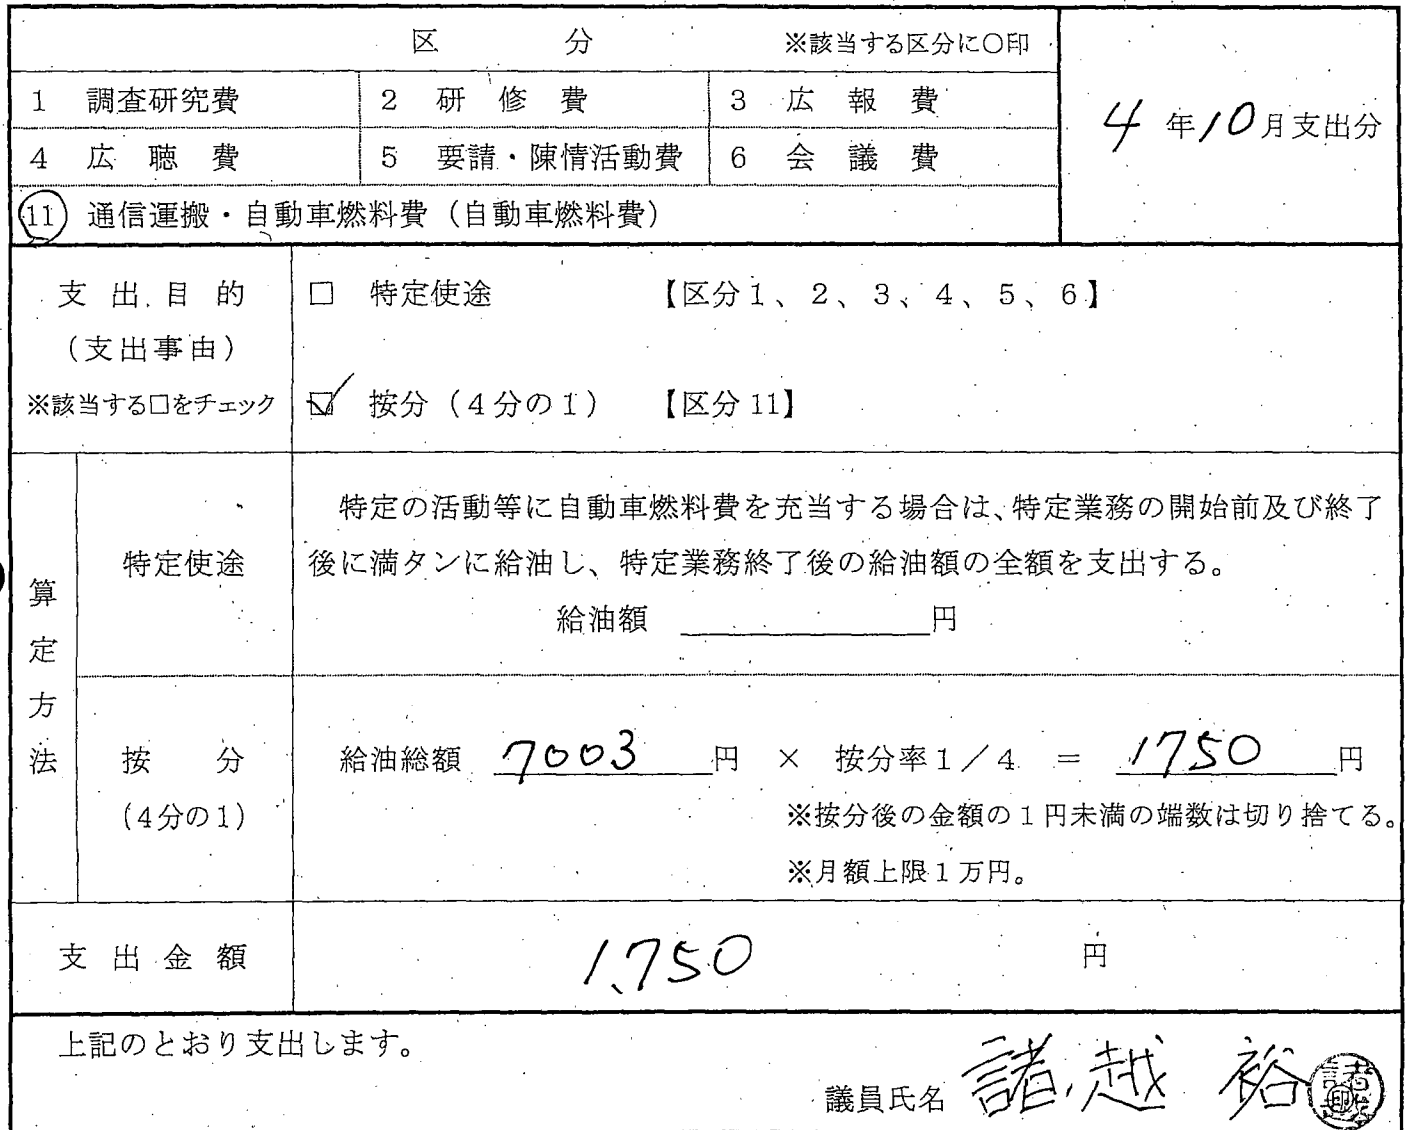 区　　　分　　　※該当する区分に○印
1　調査研究費　2　研　修　費　3　広　報　費
4年10月支出分
4　広　聴　費　5　要請・陳情活動費　6　会　議　費
⑪　通信運搬・自動車燃料費（自動車燃料費）
支出目的
（支出事由）
※該当する□をチェック
□　特定使途　【区分1、2、3、4、5、6】
☑　按分（4分の1）　【区分11】
算定方法
特定使途
特定の活動等に自動車燃料費を充当する場合は、特定業務の開始前及び終了
後に満タンに給油し、特定業務終了後の給油額の全額を支出する。
給油額　　　　円
按　　分
（4分の1）
給油総額　7003　円　×　按分率1／4　＝　1750　円
※按分後の金額の1円未満の端数は切り捨てる。
※月額上限1万円。
支出金額　1,750　円
上記のとおり支出します。
議員氏名　諸越　裕